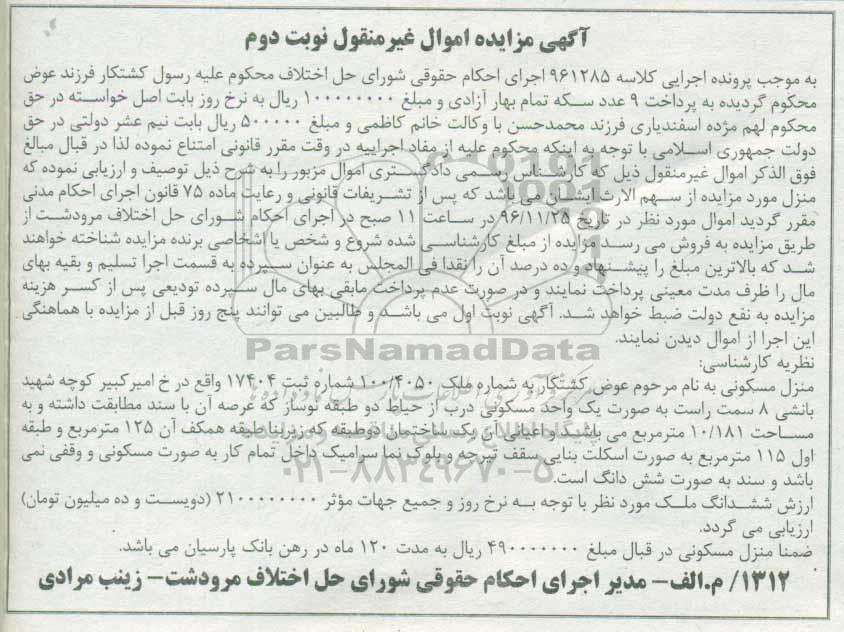 آگهی مزایده اموال غیرمنقول نوبت دوم
به موجب پرونده اجرایی کلاسه ۹۶۱۲۸۵ اجرای احکام حقوقی شورای حل اختلاف محکوم علیه رسول کشتکار فرزند عوض
محکوم گردیده به پرداخت ۹ عدد سکه تمام بهار آزادی و مبلغ ۱۰۰۰۰۰۰۰۰ ریال به نرخ روز بابت اصل خواسته در حق
محکوم لهم مژده اسفندیاری فرزند محمدحسن با وکالت خانم کاظمی و مبلغ ۵۰۰۰۰۰ ریال بابت نیم عشر دولتی در حق
دولت جمهوری اسلامی با توجه به اینکه محکوم علیه از مفاد اجراییه در وقت مقرر قانونی امتناع نموده لذا در قبال مبالغ
فوق الذکر اموال غیرمنقول ذیل که کارشناس رسمی دادگستری اموال مزبور را به شرح ذیل توصیف و ارزیابی نموده که
منزل مورد مزایده از سهم الارث ایشان می باشد که پس از تشریفات قانونی و رعایت ماده ۷۵ قانون اجرای احکام مدنی
مقرر گردید اموال مورد نظر در تاریخ ۹۶/۱۱/۲۵ در ساعت ۱۱ صبح در اجرای احکام شورای حل اختلاف مرودشت از
طریق مزایده به فروش می رسد مزایده از مبلغ کارشناسی شده شروع و شخص یا اشخاصی برنده مزایده شناخته خواهند
شد که بالاترین مبلغ را پیشنهاد و ده درصد آن را نقدا فی المجلس به عنوان سپرده به قسمت اجرا تسلیم و بقیه بهای
مال را ظرف مدت معینی پرداخت نمایند و در صورت عدم پرداخت مابقی بهای مال سپرده تودیعی پس از کسر هزینه
مزایده به نفع دولت ضبط خواهد شد. آگهی نوبت اول می باشد و طالبین می توانند پنج روز قبل از مزایده با هماهنگی
این اجرا از اموال دیدن نمایند.
ParsNamadData
نظریه کارشناسی:
منزل مسکونی به نام مرحوم عوض کشتکار به شماره ملک ۱۰۰/۴۰۵۰ شماره ثبت ۱۷۴۰۴ واقع در خ امیرکبیر کوچه شهید
بانشی ۸ سمت راست به صورت یک واحد مسکونی درب از حیاط دو طبقه نوساز که عرصه آن با سند مطابقت داشته و به
مساحت ۱۰/۱۸۱ مترمربع می باشد و اعیانی آن یک ساختمان دوطبقه که زیربنا طبقه همکف آن ۱۲۵ مترمربع و طبقه
اول ۱۱۵ مترمربع به صورت اسکلت بنایی سقف تیرچه و بلوک نما سرامیک داخل تمام کار به صورت مسکونی و وقفی نمی
باشد و سند به صورت شش دانگ است.
۰۲۱-۸۸۳۴۹۶۷۰-۵
ارزش ششدانگ ملک مورد نظر با توجه به نرخ روز و جمیع جهات مؤثر ۲۱۰۰۰۰۰۰۰۰ (دویست و ده میلیون تومان)
ارزیابی می گردد.
ضمنا منزل مسکونی در قبال مبلغ ۴۹۰۰۰۰۰۰۰ ریال به مدت ۱۲۰ ماه در رهن بانک پارسیان می باشد.
۱۳۱۲/ م.الف- مدیر اجرای احکام حقوقی شورای حل اختلاف مرودشت- زینب مرادی